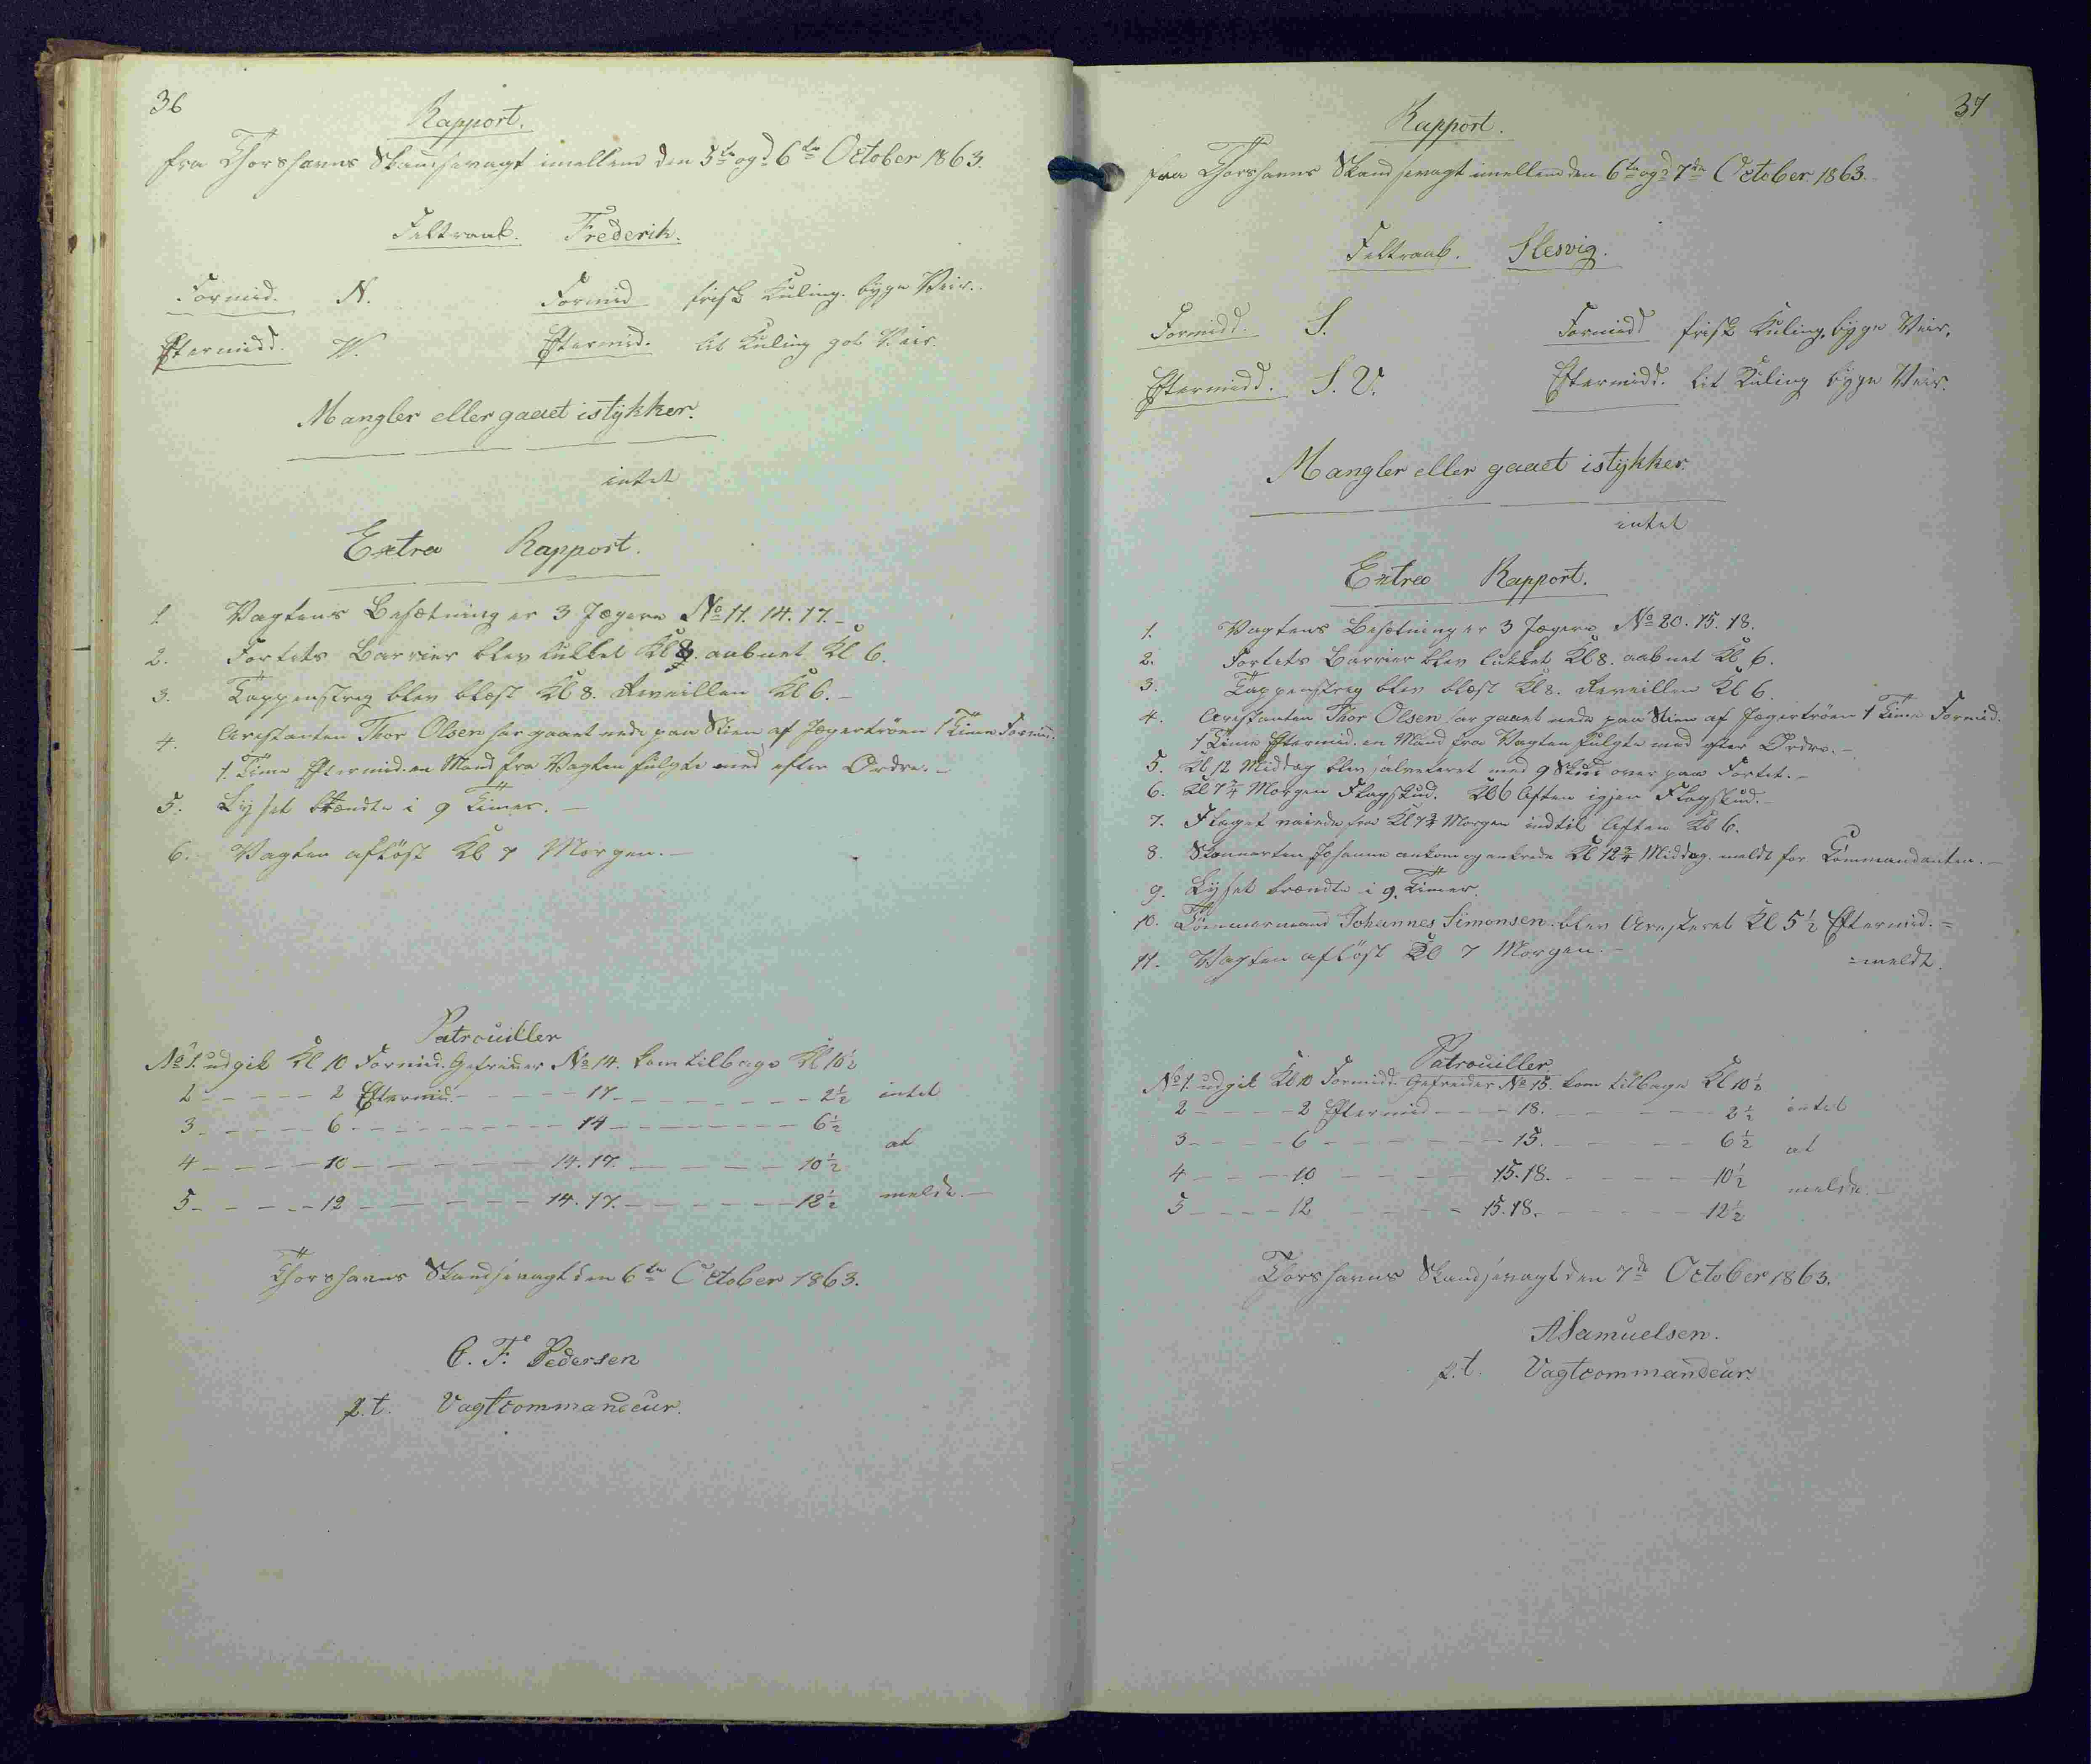 36
Rapport.
fra Thorshavns Skandsevagt imellem den 5te og 6te October 1863.
Feltraab. Frederik.
Formid. N. Formid frisk Kuling. byge Veir.
Eftermidd. W. Eftermid. lit Kuling got Veir.
Mangler eller gaaet istÿkker.
intet
Extra Rapport.
1. Vagtens Besætning er 3 Jægere No 11. 14. 17.
2. Fortets Barrier blev lukket Kl 8. aabnet Kl 6.
3. Tappenstreg blev blæst Kl 8. Reveillen Kl 6.
4. Arestanten Thor Olsen har gaaet nede paa Stien af Jægertröen 1 Time Formid.
1. Time Eftermid. en Mand fra Vagten fulgte med efter Ordre.
5. Lyset brændte i 9 Timer.
6. Vagten aflöst Kl 7 Morgen.
Patrouiller
No 1. udgik Kl 10 Formid. Gefreider No 14. kom tilbage Kl 10½
2 2 Eftermid. 17 2½ intet
3 6 14 6½
at
4 10 14. 17. 10½
5 12 14. 17. 12½ melde.
Thorshavns Skandsevagt den 6te October 1863.
C. F. Pedersen
p.t. Vagtcommandeur.
37
Rapport.
fra Thorshavns Skandsevagt imellem den 6te og 7de October 1863.
Feltraab. Slesvig.
Formidd. S. Formidd frisk Kuling, byge Veir.
Eftermidd. S. V. Eftermidd. lit Kuling byge Veir.
Mangler eller gaaet istÿkker.
intet
Extra Rapport.
1. Vagtens Besætning er 3 Jægere No 20. 15. 18.
2. Fortets Barrier blev lukket Kl 8. aabnet Kl 6.
3. Tappenstreg blev blæst Kl 8. Reveillen Kl 6.
4. Arestanten Thor Olsen har gaaet nede paa Stien af Jægertröen 1 Time Formid.
1 Time Eftermid. en Mand fra Vagten fulgte med efter Ordre.
5. Kl 12 Middag blev salveteret med 9 Skud over paa Fortet.
6. Kl 7¾ Morgen Flagskud. Kl 6 Aften igjen Flagskud.
7. Flaget vaiede fra Kl 7¾ Morgen indtil Aften Kl 6.
8. Skonnerten Johanne ankom og ankrede Kl 12¾ Middag. meldt for Commandanten.
9. Lyset brændte i 9. Timer.
10. Tömmermand Johannes Simonsen blev Aresteret Kl 5½ Eftermid. =
=meldt.
11. Vagten aflöst Kl 7 Morgen.
Patrouiller
No 1. udgik Kl 10 Formidd. Gefreider No 15. kom tilbage Kl 10½
2 2 Eftermid 18. 2½ intet
3 6 15. 6½ at
4 10 15. 18. 10½
melde.
5 12 15. 18. 12½
Thorshavns Skandsevagt den 7de October 1863.
A Samuelsen.
p.t. Vagtcommandeur.